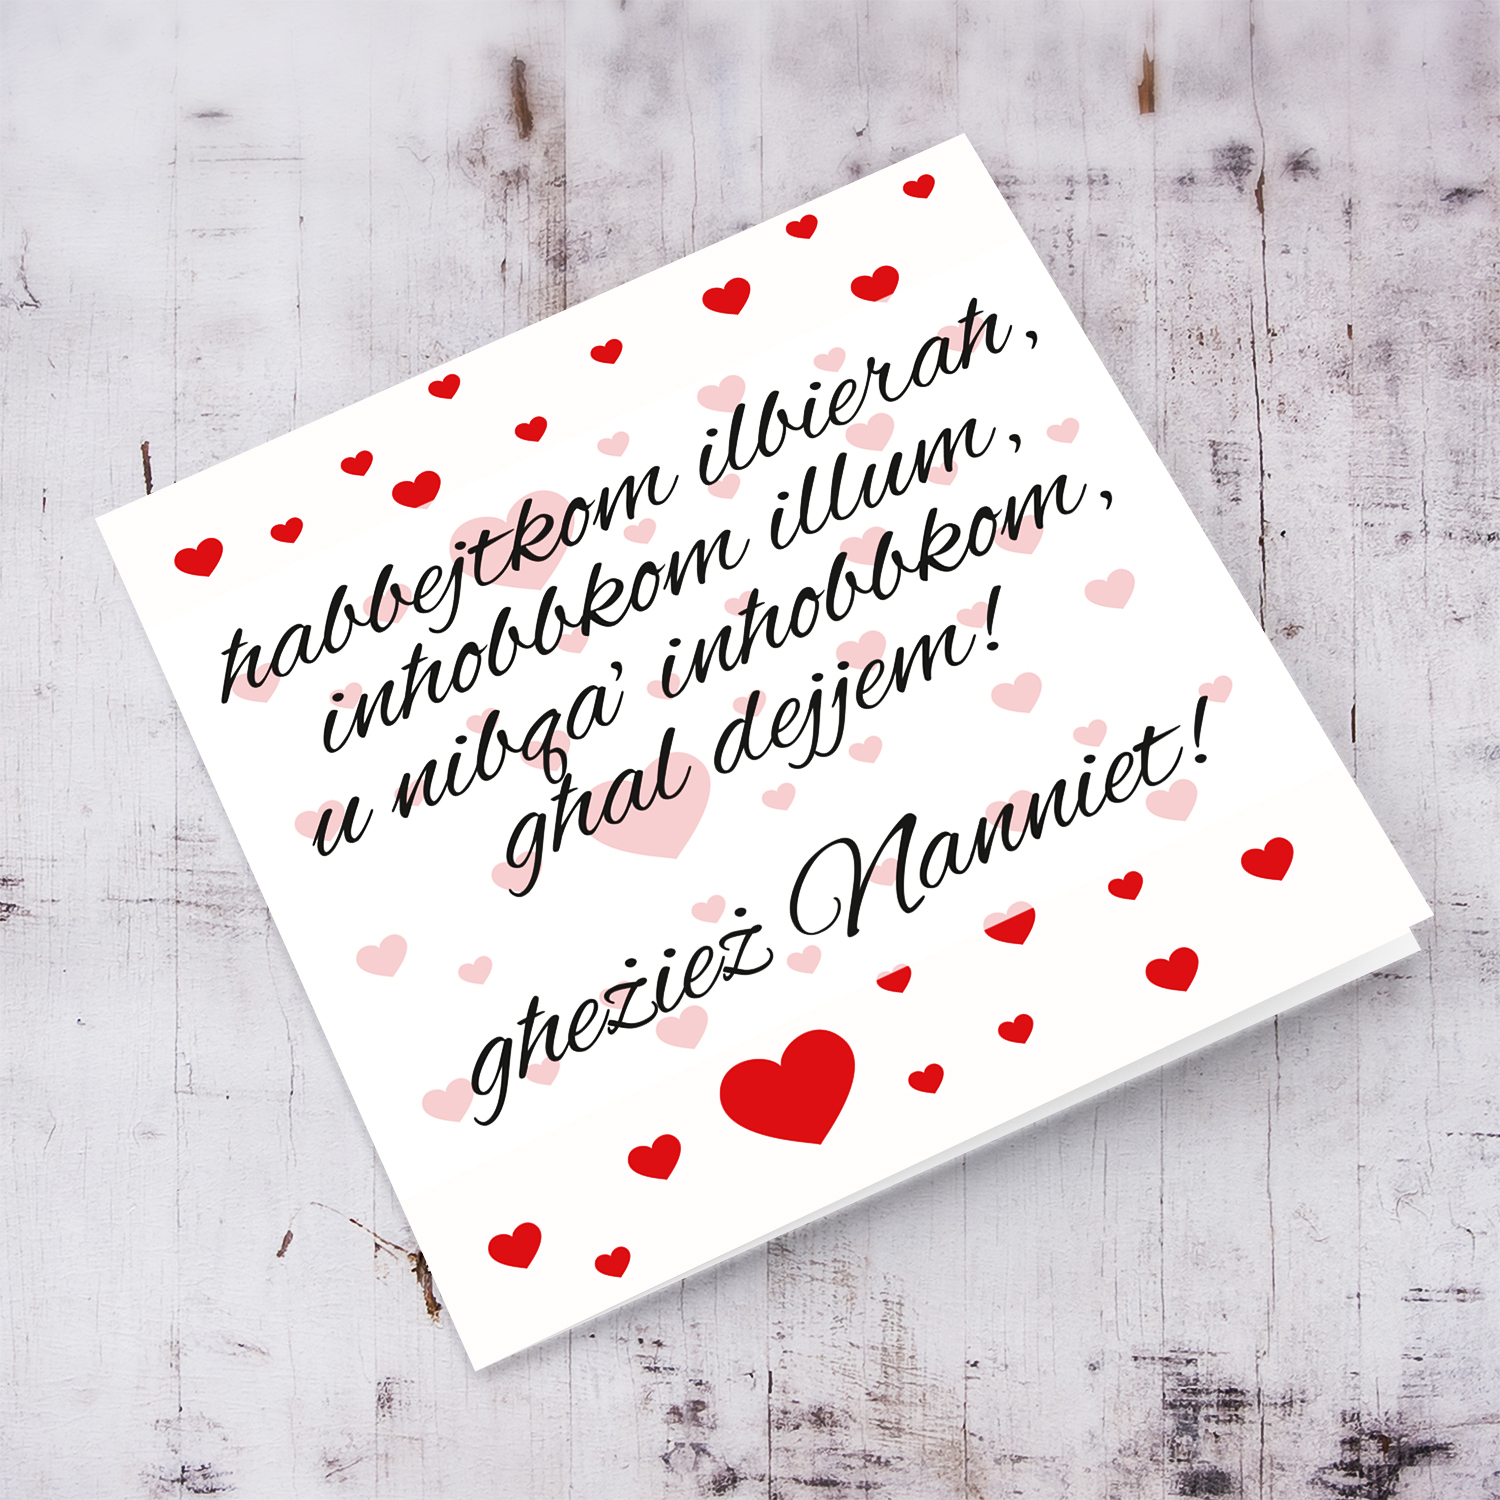 ħabbejtkom ilbieraħ,
inħobbkom illum,
u nibqa' inħobbkom,
għal dejjem!
għeżież Nanniet!